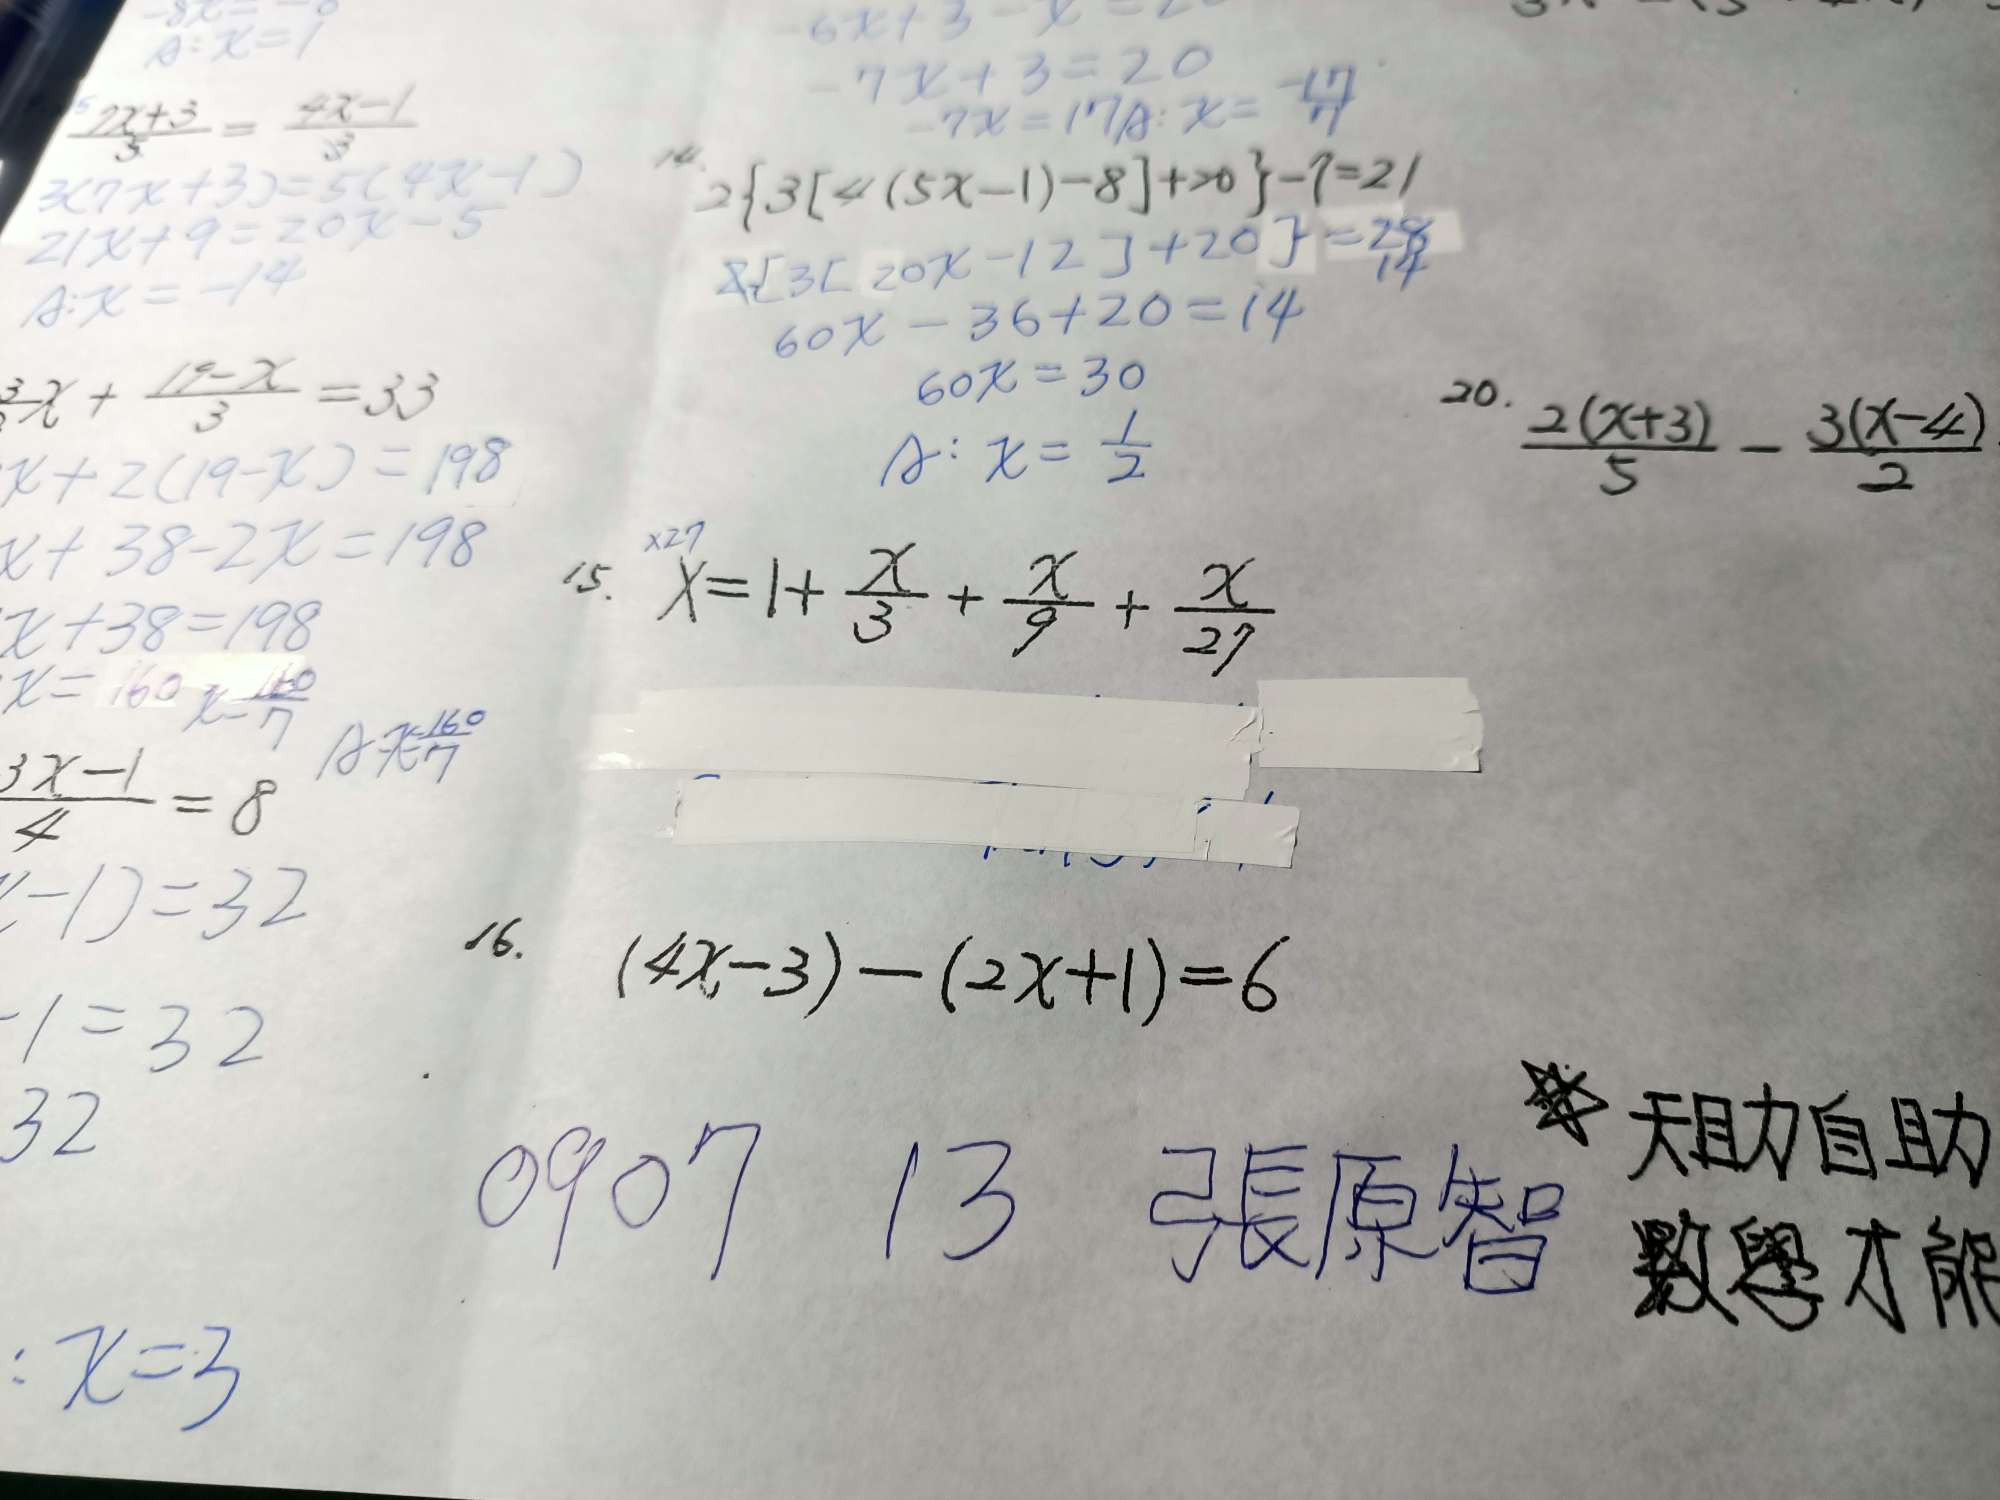 A: x=1
7x+3/5 = 4x-1/3
3(7x+3)=5(4x-1)
21x+9=20x-5
A:x=-14
x + 19-x/3 =33
x+2(19-x)=198
x+38-2x=198
x+38=198
x=160 x=160/7
A:x=160/7
3x-1/4 =8
-1)=32
-1=32
32
:x=3
-7x+3=20
-7x=17 A: x= -17/7
14. 2{3[4(5x-1)-8]+20}-7=21
2{3[20x-12]+20}=28 14
60x-36+20=14
60x=30
A: x= 1/2
×27
15. x=1+ x/3 + x/9 + x/27
16. (4x-3)-(2x+1)=6
0907 13 張原智
20. 2(x+3)/5 - 3(x-4)/2
天助自助
數學才能